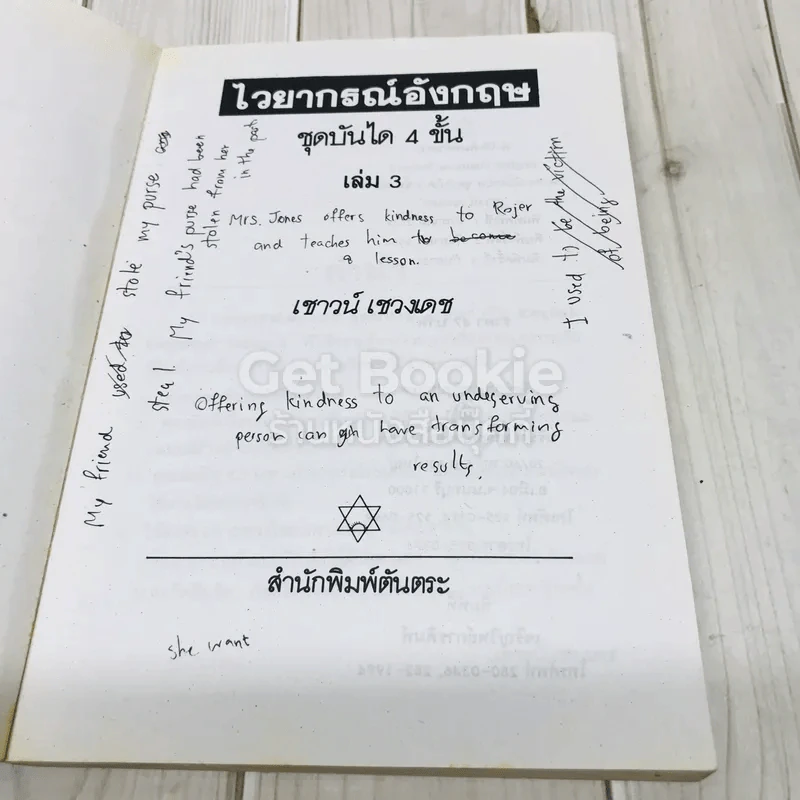 ไวยากรณ์อังกฤษ
ชุดบันได 4 ขั้น
เล่ม 3
Mrs. Jones offers kindness to Rojer
and teaches him to become
a lesson.
เชาวน์ เชวงเดช
Get Bookie
ร้านหนังสือบุ๊คกี้
Offering kindness to an undeserving
person can have transforming
results.
สำนักพิมพ์ต้นตระ
she want
My friend used to stole my purse
steal. My friend's purse had been
stolen from her
in the past
I used to be the victim
of being